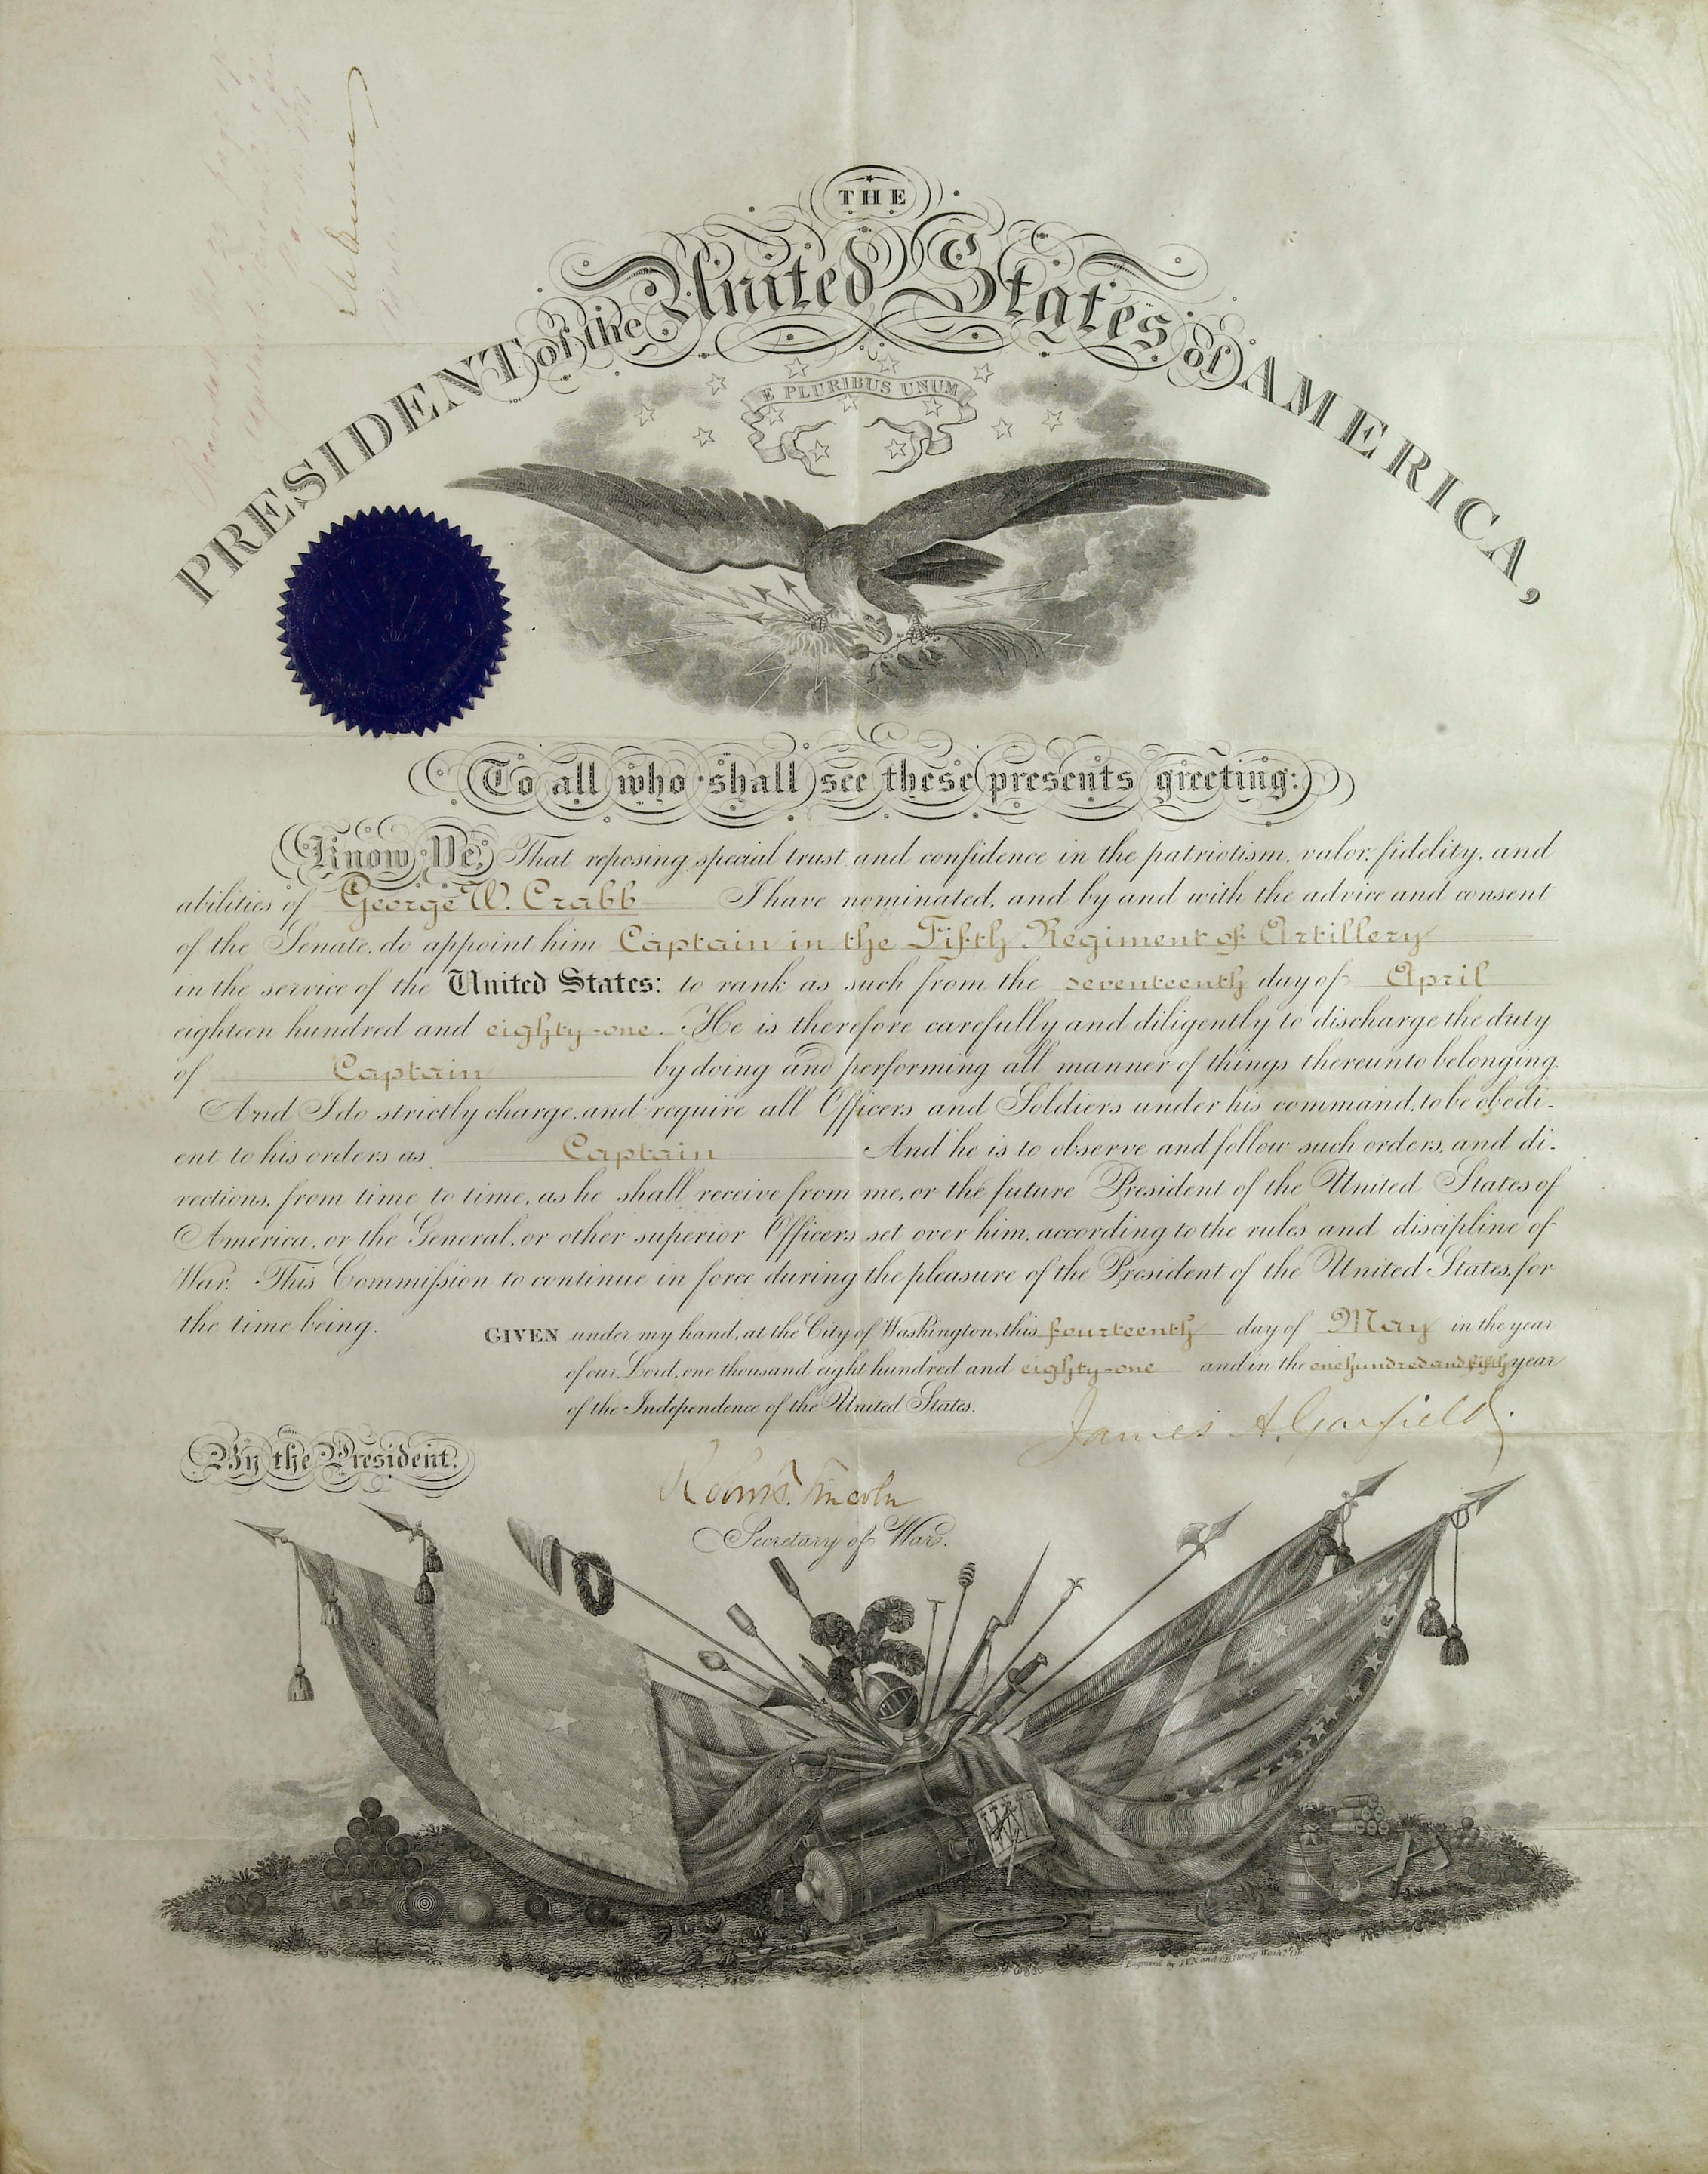 THE
PRESIDENT of the United States of AMERICA,
E PLURIBUS UNUM
To all who shall see these presents greeting:
Know Ye, That reposing special trust and confidence in the patriotism, valor, fidelity, and
abilities of George W. Crabb I have nominated, and by and with the advice and consent
of the Senate, do appoint him Captain in the Fifth Regiment of Artillery
in the service of the United States: to rank as such from the seventeenth day of April
eighteen hundred and eighty-one. He is therefore carefully and diligently to discharge the duty
of Captain by doing and performing all manner of things thereunto belonging.
And I do strictly charge, and require all Officers and Soldiers under his command, to be obedi-
ent to his orders as Captain And he is to observe and follow such orders, and di-
rections, from time to time, as he shall receive from me, or the future President of the United States of
America, or the General, or other superior Officers set over him, according to the rules and discipline of
War. This Commission to continue in force during the pleasure of the President of the United States, for
the time being.
GIVEN under my hand, at the City of Washington, this fourteenth day of May in the year
of our Lord, one thousand eight hundred and eighty-one and in the one hundred and fifth year
of the Independence of the United States.
James A. Garfield
By the President.
Robt. T. Lincoln
Secretary of War.
Engraved by J.V.N. and O.H. Throop Washn. City